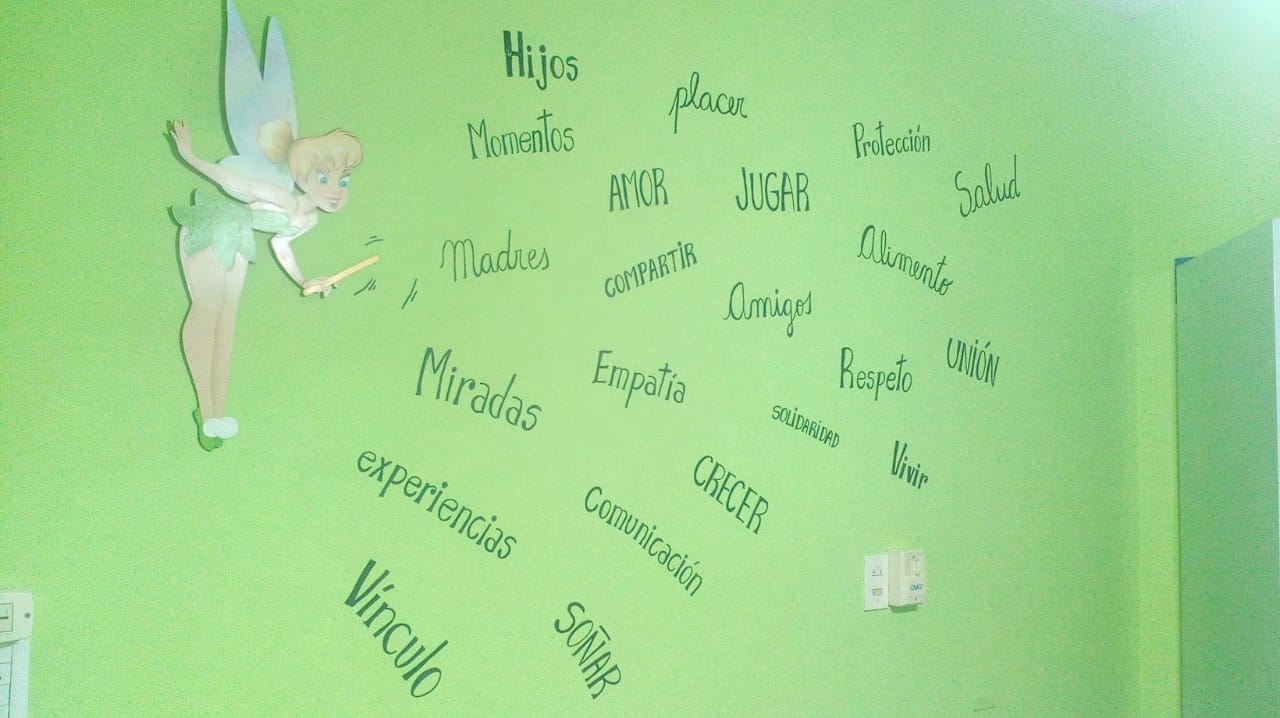 Hijos
placer
Momentos
Protección
AMOR
JUGAR
Salud
Madres
COMPARTIR
Alimento
Amigos
Miradas
Empatía
Respeto
UNIÓN
SOLIDARIDAD
Vivir
experiencias
Comunicación
CRECER
Vínculo
SOÑAR